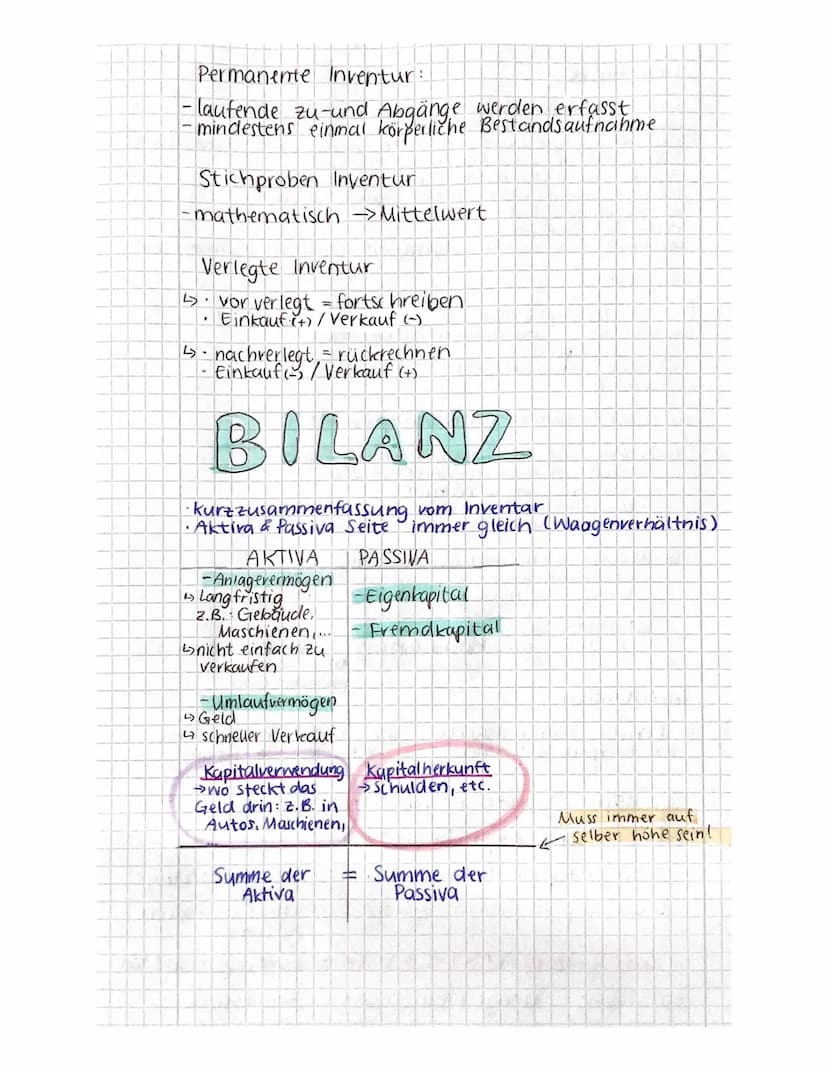 Permanente Inventur:
- laufende zu-und Abgänge werden erfasst
- mindestens einmal körperliche Bestandsaufnahme
Stichproben Inventur
- mathematisch → Mittelwert
Verlegte Inventur
↳ · vor verlegt = fortschreiben
· Einkauf (+) / Verkauf (-)
↳ · nachverlegt = rückrechnen
- Einkauf (-) / Verkauf (+)
BILANZ
· kurzzusammenfassung vom Inventar
· Aktiva & Passiva Seite immer gleich (Waagenverhältnis)
AKTIVA
- Anlagevermögen
↳ Langfristig
z.B.: Gebäude,
Maschienen,...
↳ nicht einfach zu
verkaufen
- Umlaufvermögen
↳ Geld
↳ schneller Verkauf
Kapitalverwendung
→ wo steckt das
Geld drin: z.B. in
Autos, Maschienen,
PASSIVA
- Eigenkapital
- Fremdkapital
Kapitalherkunft
→ Schulden, etc.
Muss immer auf
selber höhe sein!
Summe der = Summe der
Aktiva Passiva